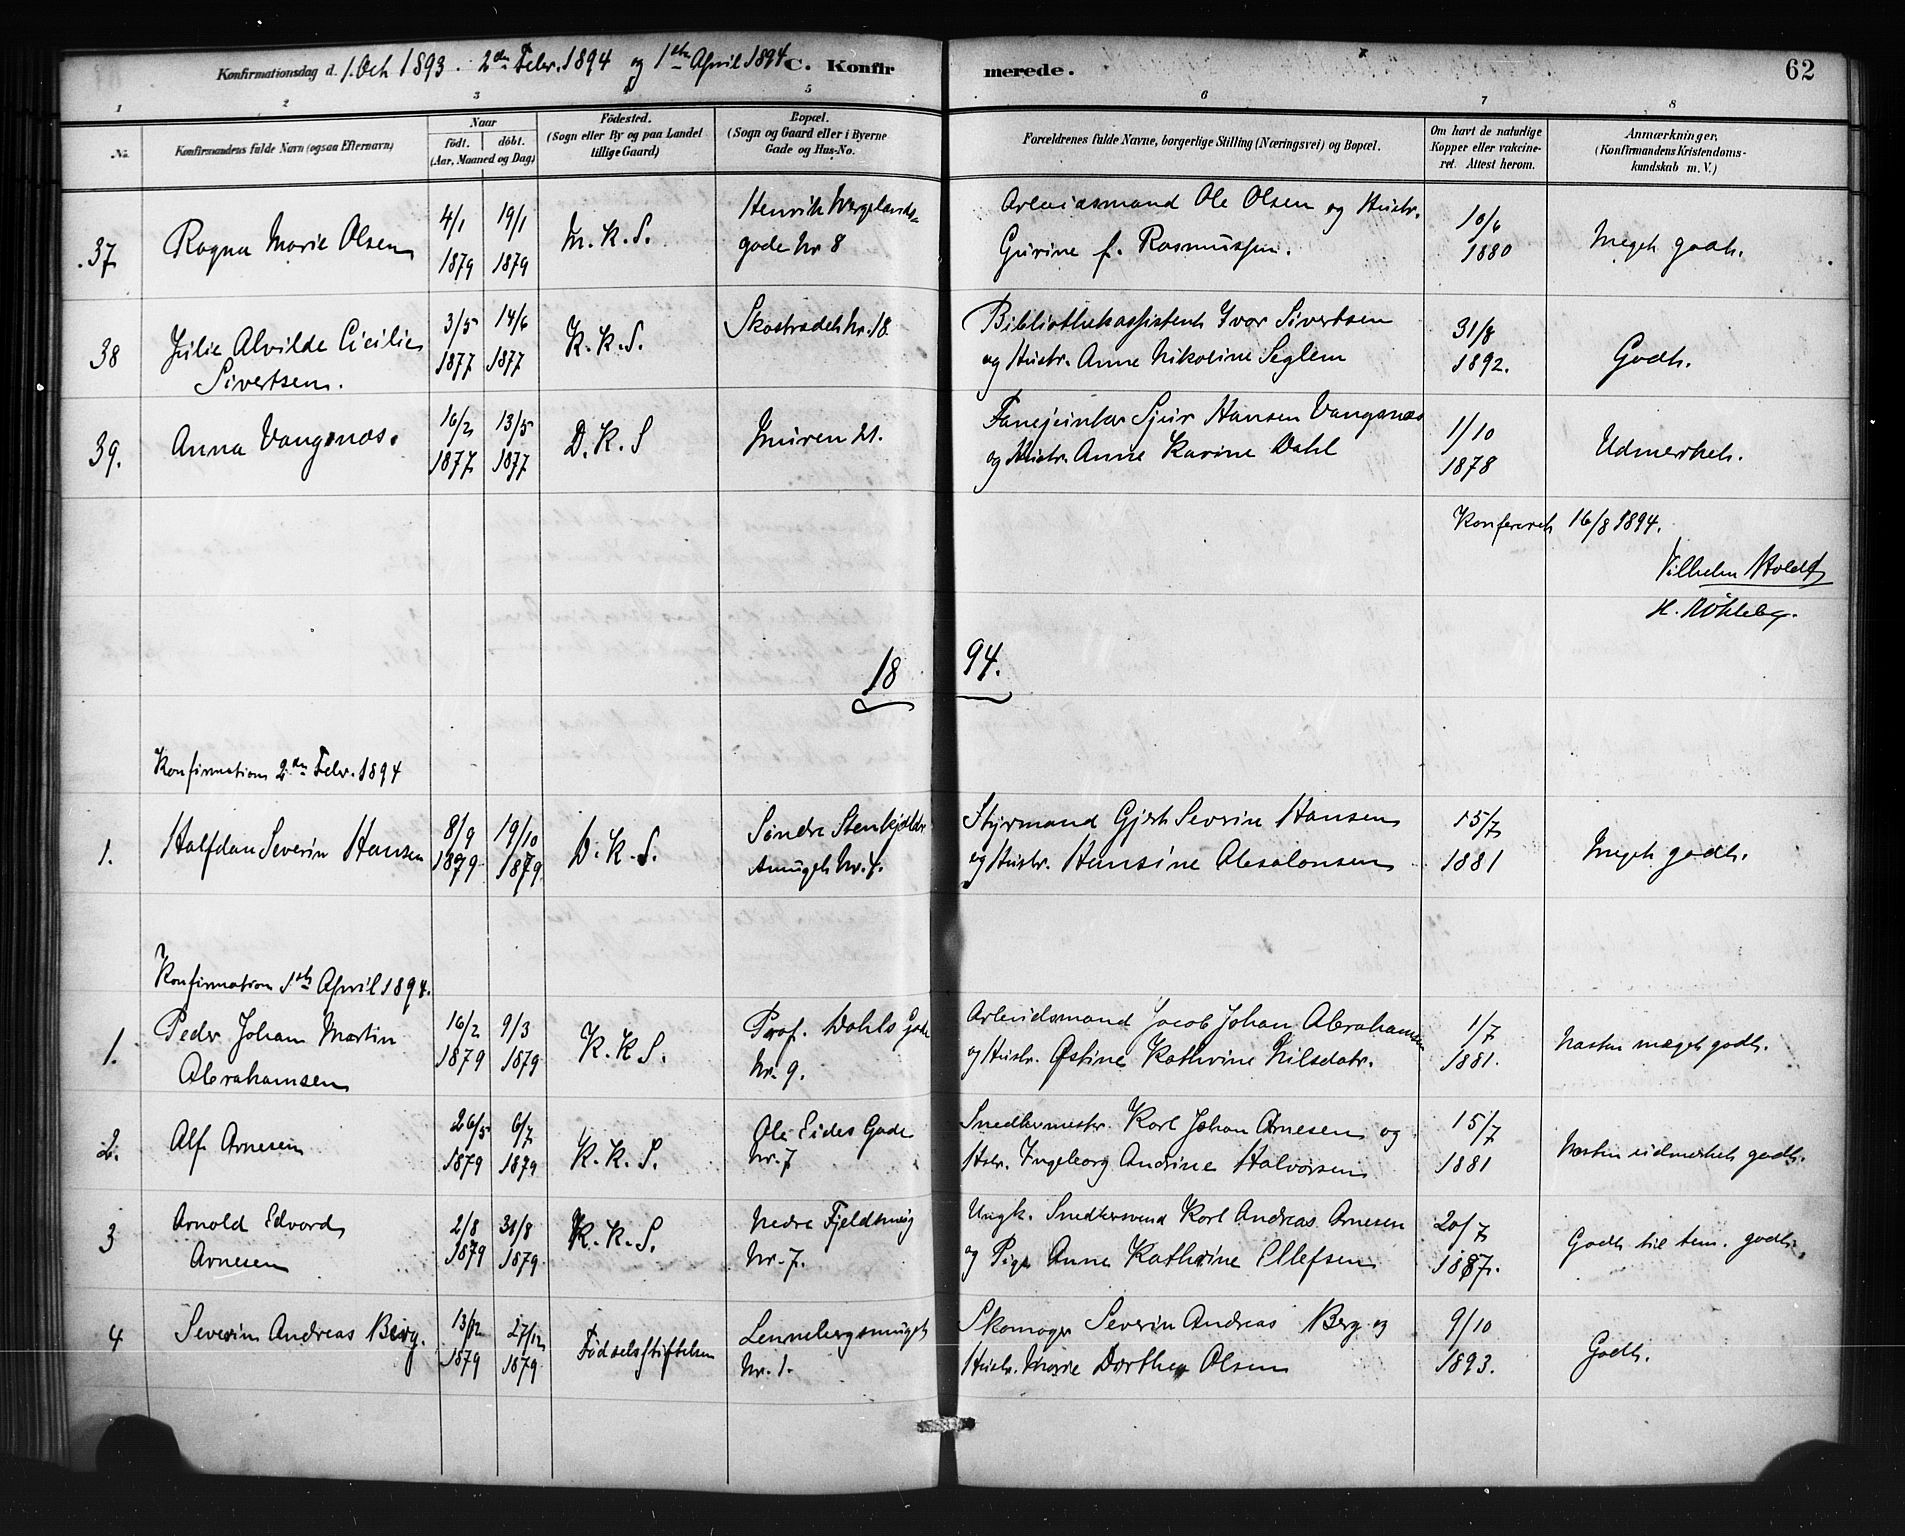 Konfirmationsdag d. 1. Oct 1893. 2den Febr. 1894 og 1ste April 1894 C. Konfir merede. 62
1 2 3 5 6 7 8
No.
Konfirmandens fulde Navn (ogsaa Efternavn)
Naar
født. døbt.
(Aar, Maaned og Dag)
Fødested.
(Sogn eller By og paa Landet
tillige Gaard)
Bopæl.
(Sogn og Gaard eller i Byerne
Gade og Hus-No.
Forældrenes fulde Navne, borgerlige Stilling (Næringsvei) og Bopæl.
Om havt de naturlige
Kopper eller vakcine-
ret. Attest herom.
Anmærkninger,
(Konfirmandens Kristendoms-
kundskab m. V.)
37 Ragna Marie Olsen 4/1 1879 19/1 1879 M. K. S. Henrik Wergelands-
gade Nr 8
Arbeidsmand Ole Olsen og Hustr.
Gurine f. Rasmussen.
10/6 1880 Meget godt.
38 Julie Alvilde Cicilie
Sivertsen.
3/5 1877 14/6 1877 K. K. S. Skostrædet Nr. 18
Bibliothekassistent Ivar Sivertsen
og Hustr. Anne Nikoline Seglem
31/8 1892. Godt.
39. Anna Vangsnæs. 16/2 1877 13/5 1877 D. K. S Muren 21.
Fanejunker Sjur Hansen Vangsnæs
og Hustr. Anne Karine Dahl
1/10 1878 Udmerket.
Konfereret 16/8 1894.
Vilhelm Holdt
1894.
Konfirmation 2den Febr. 1894
1. Halfdan Severin Hansen 8/9 1879 19/10 1879 D. K. S. Søndre Stenkjelder
smuget Nr. 4.
Styrmand Gjert Severin Hansen
og Hustr. Hansine Absalonsen
15/7 1881 Meget godt.
Konfirmation 1ste April 1894.
1. Peder Johan Martin
Abrahamsen
16/2 1879 9/3 1879 K. K. S. Prof. Dahls Gade
Nr. 9.
Arbeidsmand Jacob Johan Abrahamsen
og Hustr. Østine Kathrine Nilsdatr.
1/7 1881. Næsten meget godt.
2. Alf Arnesen 26/5 1879 6/7 1879 K. K. S. Ole Eides Gade
Nr. 7
Snedkermestr. Karl Johan Arnesen og
Hstr. Ingeborg Andrine Halvorsen
15/7 1881 Næsten udmerket godt.
3 Arnold Edvard
Arnesen
2/8 1879 31/8 1879 K. K. S. Nedre Fjeldsmug
Nr. 7.
Ungk. Snedkersvend Karl Andreas Arnesen
og Pige Anne Kathrine Ellefsen
20/7 1887. Godt til tem. godt.
4 Severin Andreas Berg. 13/12 1879 27/12 1879 Fødselsstiftelsen Lennebergsmuget
Nr. 1.
Skomager Severin Andreas Berg og
Hustr. Marie Dorthea Olsen
9/10 1893. Godt.